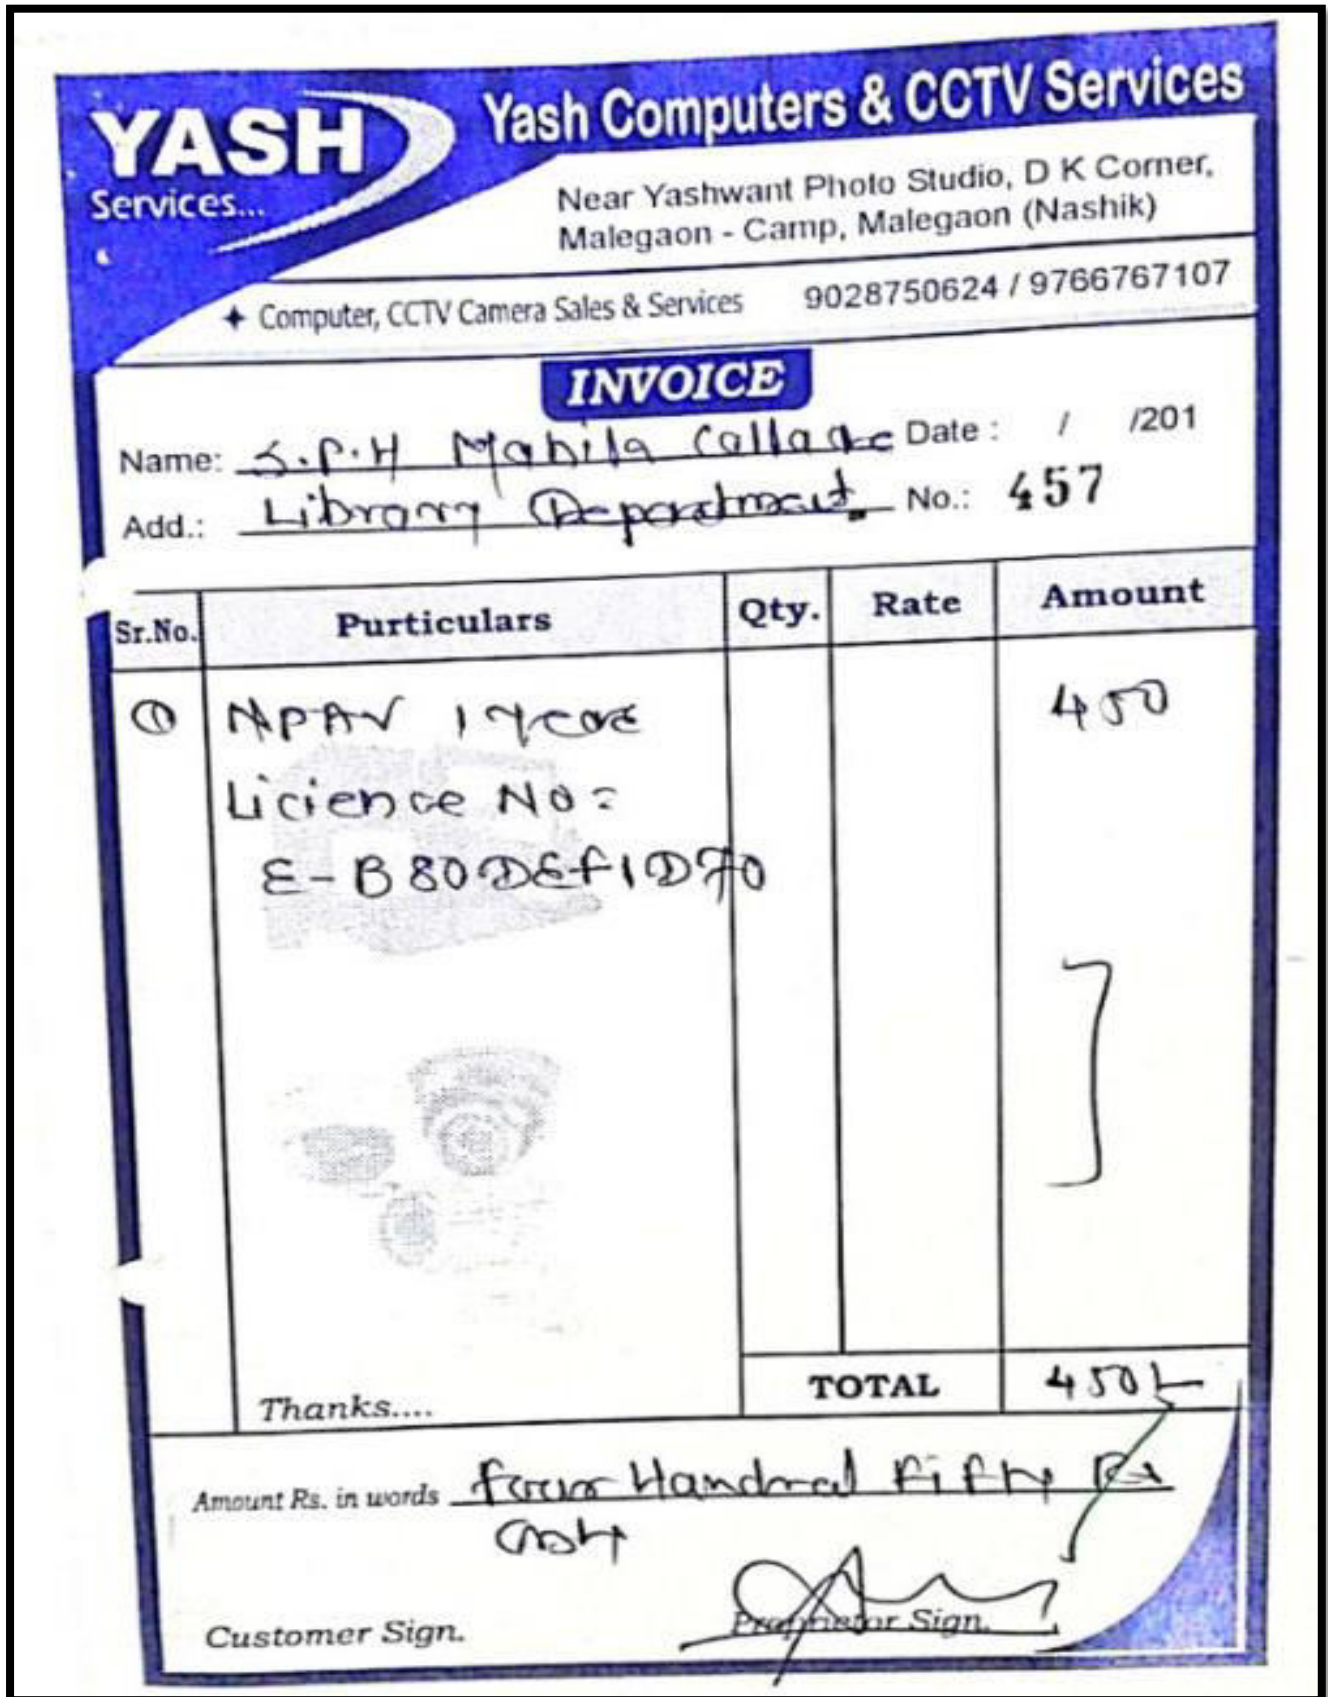 YASH
Services...
Yash Computers & CCTV Services
Near Yashwant Photo Studio, D K Corner,
Malegaon - Camp, Malegaon (Nashik)
Computer, CCTV Camera Sales & Services 9028750624 / 9766767107
INVOICE
Name: S.P.H Mahila Callage Date : / /201
Add.: Library Department No.: 457
Sr.No. Purticulars Qty. Rate Amount
① NPAV 1 Year 450
Licience No =
E-B80DEF1D70
TOTAL 450/-
Thanks....
Amount Rs. in words Four Handred Fifty Rs
Customer Sign. Proprietor Sign.